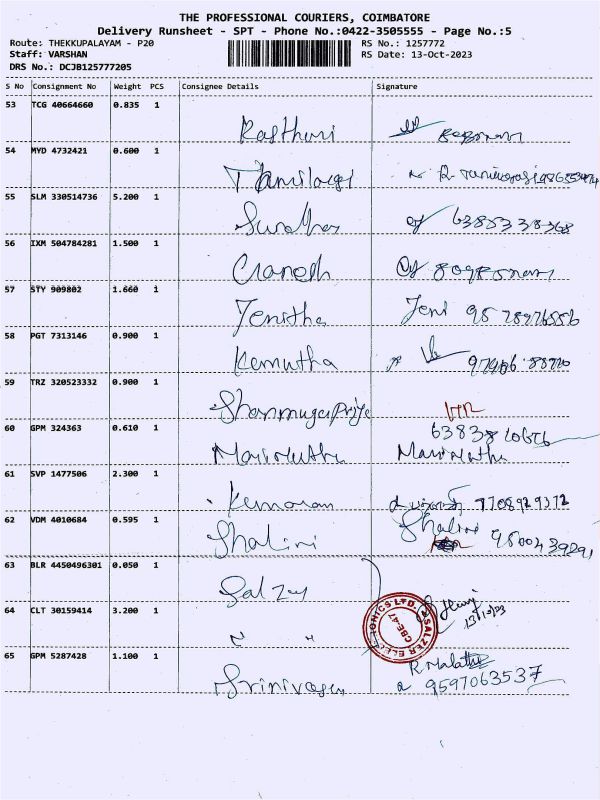 THE PROFESSIONAL COURIERS, COIMBATORE
Delivery Runsheet - SPT - Phone No.:0422-3505555 - Page No.:5
Route: THEKKUPALAYAM - P20 RS No.: 1257772
Staff: VARSHAN RS Date: 13-Oct-2023
DRS No.: DCJB125777205
S No Consignment No Weight PCS Consignee Details Signature
53 TCG 40664660 0.835 1
Kasthuri
54 MYD 4732421 0.600 1
Tamilarasi
55 SLM 330514736 5.200 1
Sundhar 6385338368
56 IXM 504784281 1.500 1
Ganesh
57 STY 909802 1.660 1
Jenitha Jeni 9578976556
58 PGT 7313146 0.900 1
Kemutha
59 TRZ 320523332 0.900 1
Shanmugapriya
60 GPM 324363 0.610 1
Marimuthu Marimuthu
61 SVP 1477506 2.300 1
Kumaran 7708929372
62 VDM 4010684 0.595 1 Shalini
Shalini 9500439291
63 BLR 4450496301 0.050 1
Salzer
64 CLT 30159414 3.200 1
SALZER ELECTRONICS LTD. CBE-47
13/10/23
" "
65 GPM 5287428 1.100 1 R Malathi
Srinivasan 9597063537